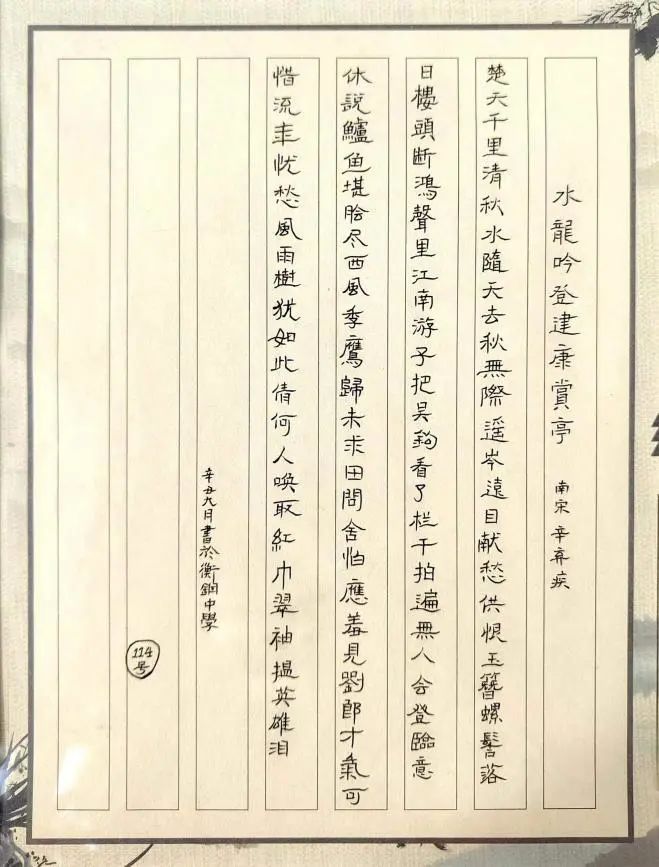 水龍吟登建康賞亭 南宋 辛弃疾
楚天千里清秋水隨天去秋無際遥岑遠目献愁供恨玉簪螺髻落
日樓頭断鴻聲里江南游子把吴鉤看了栏干拍遍無人会登臨意
休説鱸鱼堪脍尽西風季鷹歸未求田問舍怕應羞見劉郎才氣可
惜流年忧愁風雨樹犹如此倩何人唤取紅巾翠袖揾英雄泪
辛丑九月書於衡鋼中學
114号